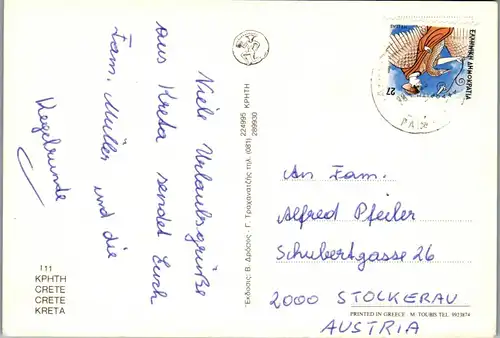 Viele Urlaubsgrüße
aus Kreta sendet Euch
Fam. Müller und die
Kegelrunde
111
ΚΡΗΤΗ
CRETE
CRETE
KRETA
Έκδοσις: Β. Δρόσος - Γ. Τραχανατζής τηλ. (081) 224995 ΚΡΗΤΗ
286930
ΕΛΛΗΝΙΚΗ ΔΗΜΟΚΡΑΤΙΑ
HELLAS
27
An Fam.
Alfred Pfeiler
Schubertgasse 26
2000 STOCKERAU
AUSTRIA
PRINTED IN GREECE M. TOUBIS TEL. 9923874